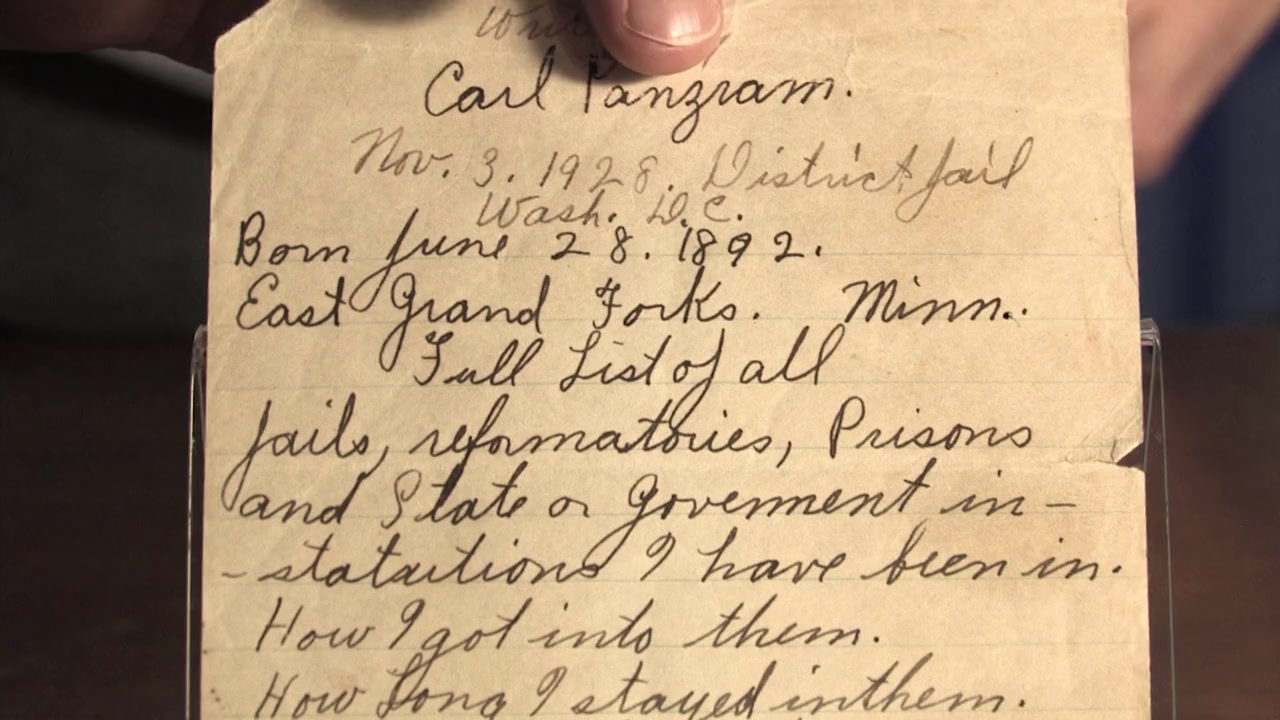 Carl Panzram.
Nov. 3. 1928. District Jail
Wash. D.C.
Born June 28. 1892.
East Grand Forks. Minn..
Full List of all
Jails, reformatories, Prisons
and State or Goverment in-
-statutions I have been in.
How I got into them.
How Long I stayed in them.